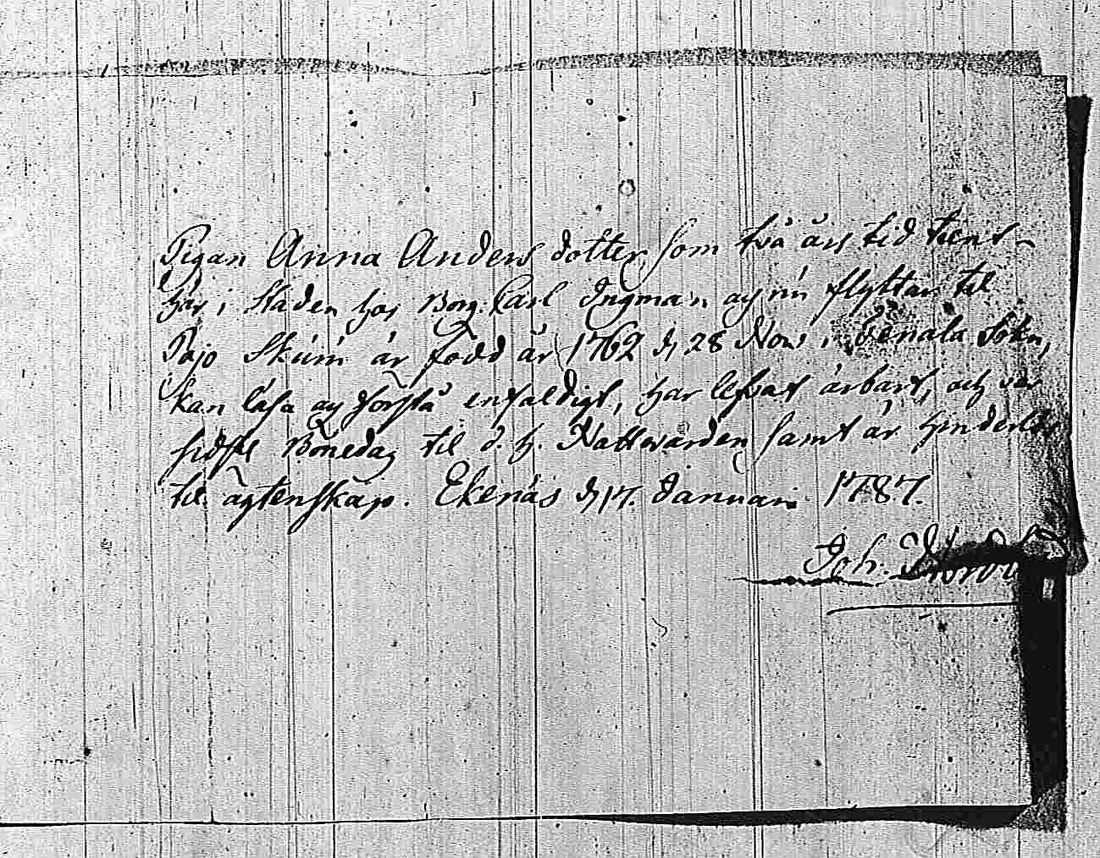 Pigan Anna Anders dotter som två års tid tient
här i Staden hos Borg: Carl Ingman och nu flyttar til
Pojo Skuru är född år 1762 d 28 Nov i Tenala Sokn,
kan läsa och förstå enfaldigt, har lefvat ärbart, och var
sidste Bönedag til d. h. Nattvarden samt är hinderlös
til ägtenskap. Ekenäs d 17. Januari 1787.
Joh.